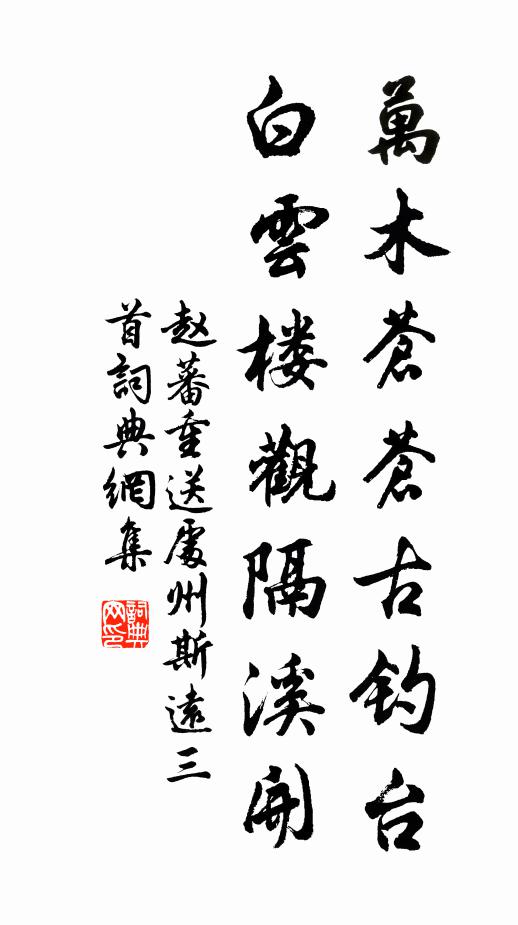 萬木蒼蒼古钓台
白雲楼觀隔溪開
赵蕃重送處州斯遠三
首詞典網集
詞典网印